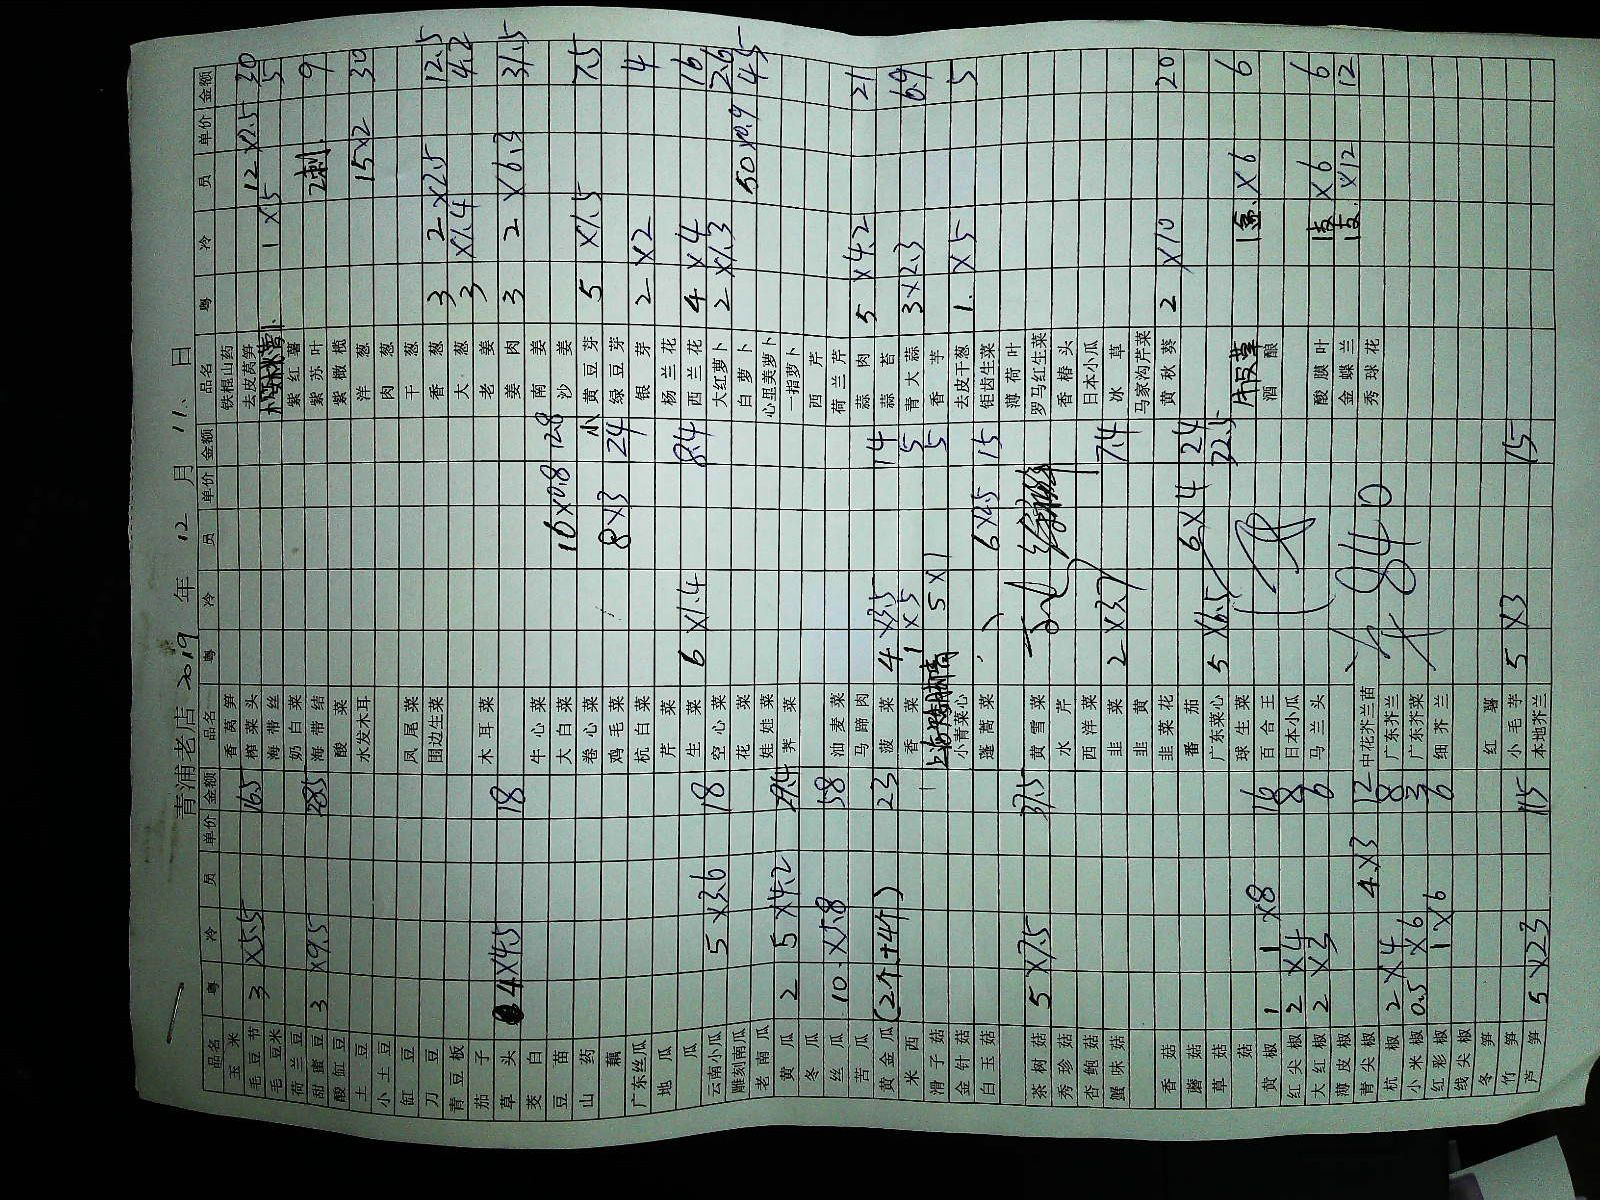 青浦老店 2019 年 12 月 11 日
品名 粤 冷 员 单价 金额 品名 粤 冷 员 单价 金额 品名 粤 冷 员 单价 金额
玉米 香莴笋 铁棍山药
毛豆节 3 ×5.5 16.5 榨菜头 去皮莴笋 12 ×2.5 30
毛豆米 海带丝 1 ×5 5
荷兰豆 奶白菜 紫红薯
甜蜜豆 3 ×9.5 28.5 海带结 紫苏叶 2 9
酸豇豆 酸菜 紫橄榄
土豆 水发木耳 洋葱 15×2 30
小土豆 肉葱
豇豆 凤尾菜 干葱
刀豆 围边生菜 香葱 3 2 ×2.5 12.5
青豆板 大葱 3 ×1.4 4.2
茄子 木耳菜 老姜
草头 4×4.5 18 姜肉 3 2 ×6.3 31.5
茭白 牛心菜 南姜
豆苗 大白菜 16×0.8 12.8 沙姜
山药 卷心菜 黄豆芽 5 ×1.5 7.5
藕 鸡毛菜 8×3 24 绿豆芽
广东丝瓜 杭白菜 银芽 2 ×2 4
地瓜 芹菜 杨兰花
瓜 生菜 6 ×1.4 8.4 西兰花 4 ×4 16
云南小瓜 5 ×3.6 18 空心菜 大红萝卜 2 ×1.3 2.6
雕刻南瓜 花菜 白萝卜 50×0.9 45
老南瓜 娃娃菜 心里美萝卜
黄瓜 2 5 ×4.2 29.4 荠菜 一指萝卜
冬瓜 西芹
丝瓜 10 ×5.8 58 油麦菜 荷兰芹
苦瓜 马蹄肉 蒜肉 5 ×4.2 21
黄金瓜 (2个+4个) 23 菠菜 4 ×3.5 14 蒜苔
米西 香菜 1 ×5 5 青大蒜 3×2.3 6.9
滑子菇 5×1 5 香芋
金针菇 小青菜心 去皮干葱 1 ×5 5
白玉菇 蓬蒿菜 6×2.5 15 锯齿生菜
薄荷叶
茶树菇 5 ×7.5 37.5 黄雪菜 罗马红生菜
秀珍菇 水芹 香椿头
杏鲍菇 西洋菜 日本小瓜
蟹味菇 韭菜 2 ×3.7 7.4 冰草
韭黄 马家沟芹菜
香菇 韭菜花 黄秋葵 2 ×10 20
蘑菇 番茄 6×4 24
草菇 广东菜心 5 ×6.5 32.5
菇 球生菜 牛皮菜 ×6 6
黄椒 1 1 ×8 16 百合王 酒酿
红尖椒 2 ×4 8 日本小瓜
大红椒 2 ×3 6 马兰头 酸膜叶 1支 ×6 6
薄皮椒 金蝶兰 1支 ×12 12
青尖椒 4×3 12 中花芥兰苗 秀球花
杭椒 2 ×4 8 广东芥兰 840
小米椒 0.5 ×6 3 广东芥菜
红彩椒 1×6 6 细芥兰
线尖椒
冬笋 红薯
竹笋 小毛芋 5 ×3 15
芦笋 5 ×23 115 本地芥兰